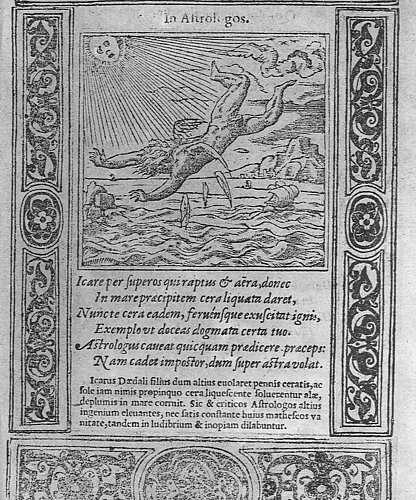 In Astrologos.
Icare per superos qui raptus & aëra, donec
In mare præcipitem cera liquata daret,
Nunc te cera eadem, feruénsque exuscitat ignis,
Exemplo vt doceas dogmata certa tuo.
Astrologus caueat quicquam prædicere præceps:
Nam cadet impostor, dum super astra volat.
Icarus Dædali filius dum altius euolaret pennis ceratis, ac
sole iam nimis propinquo cera liquescente soluerentur alæ,
deplumis in mare corruit. Sic & criticos Astrologos altius
ingenium eleuantes, nec satis constante huius matheseos va
nitate, tandem in ludibrium & inopiam dilabuntur.